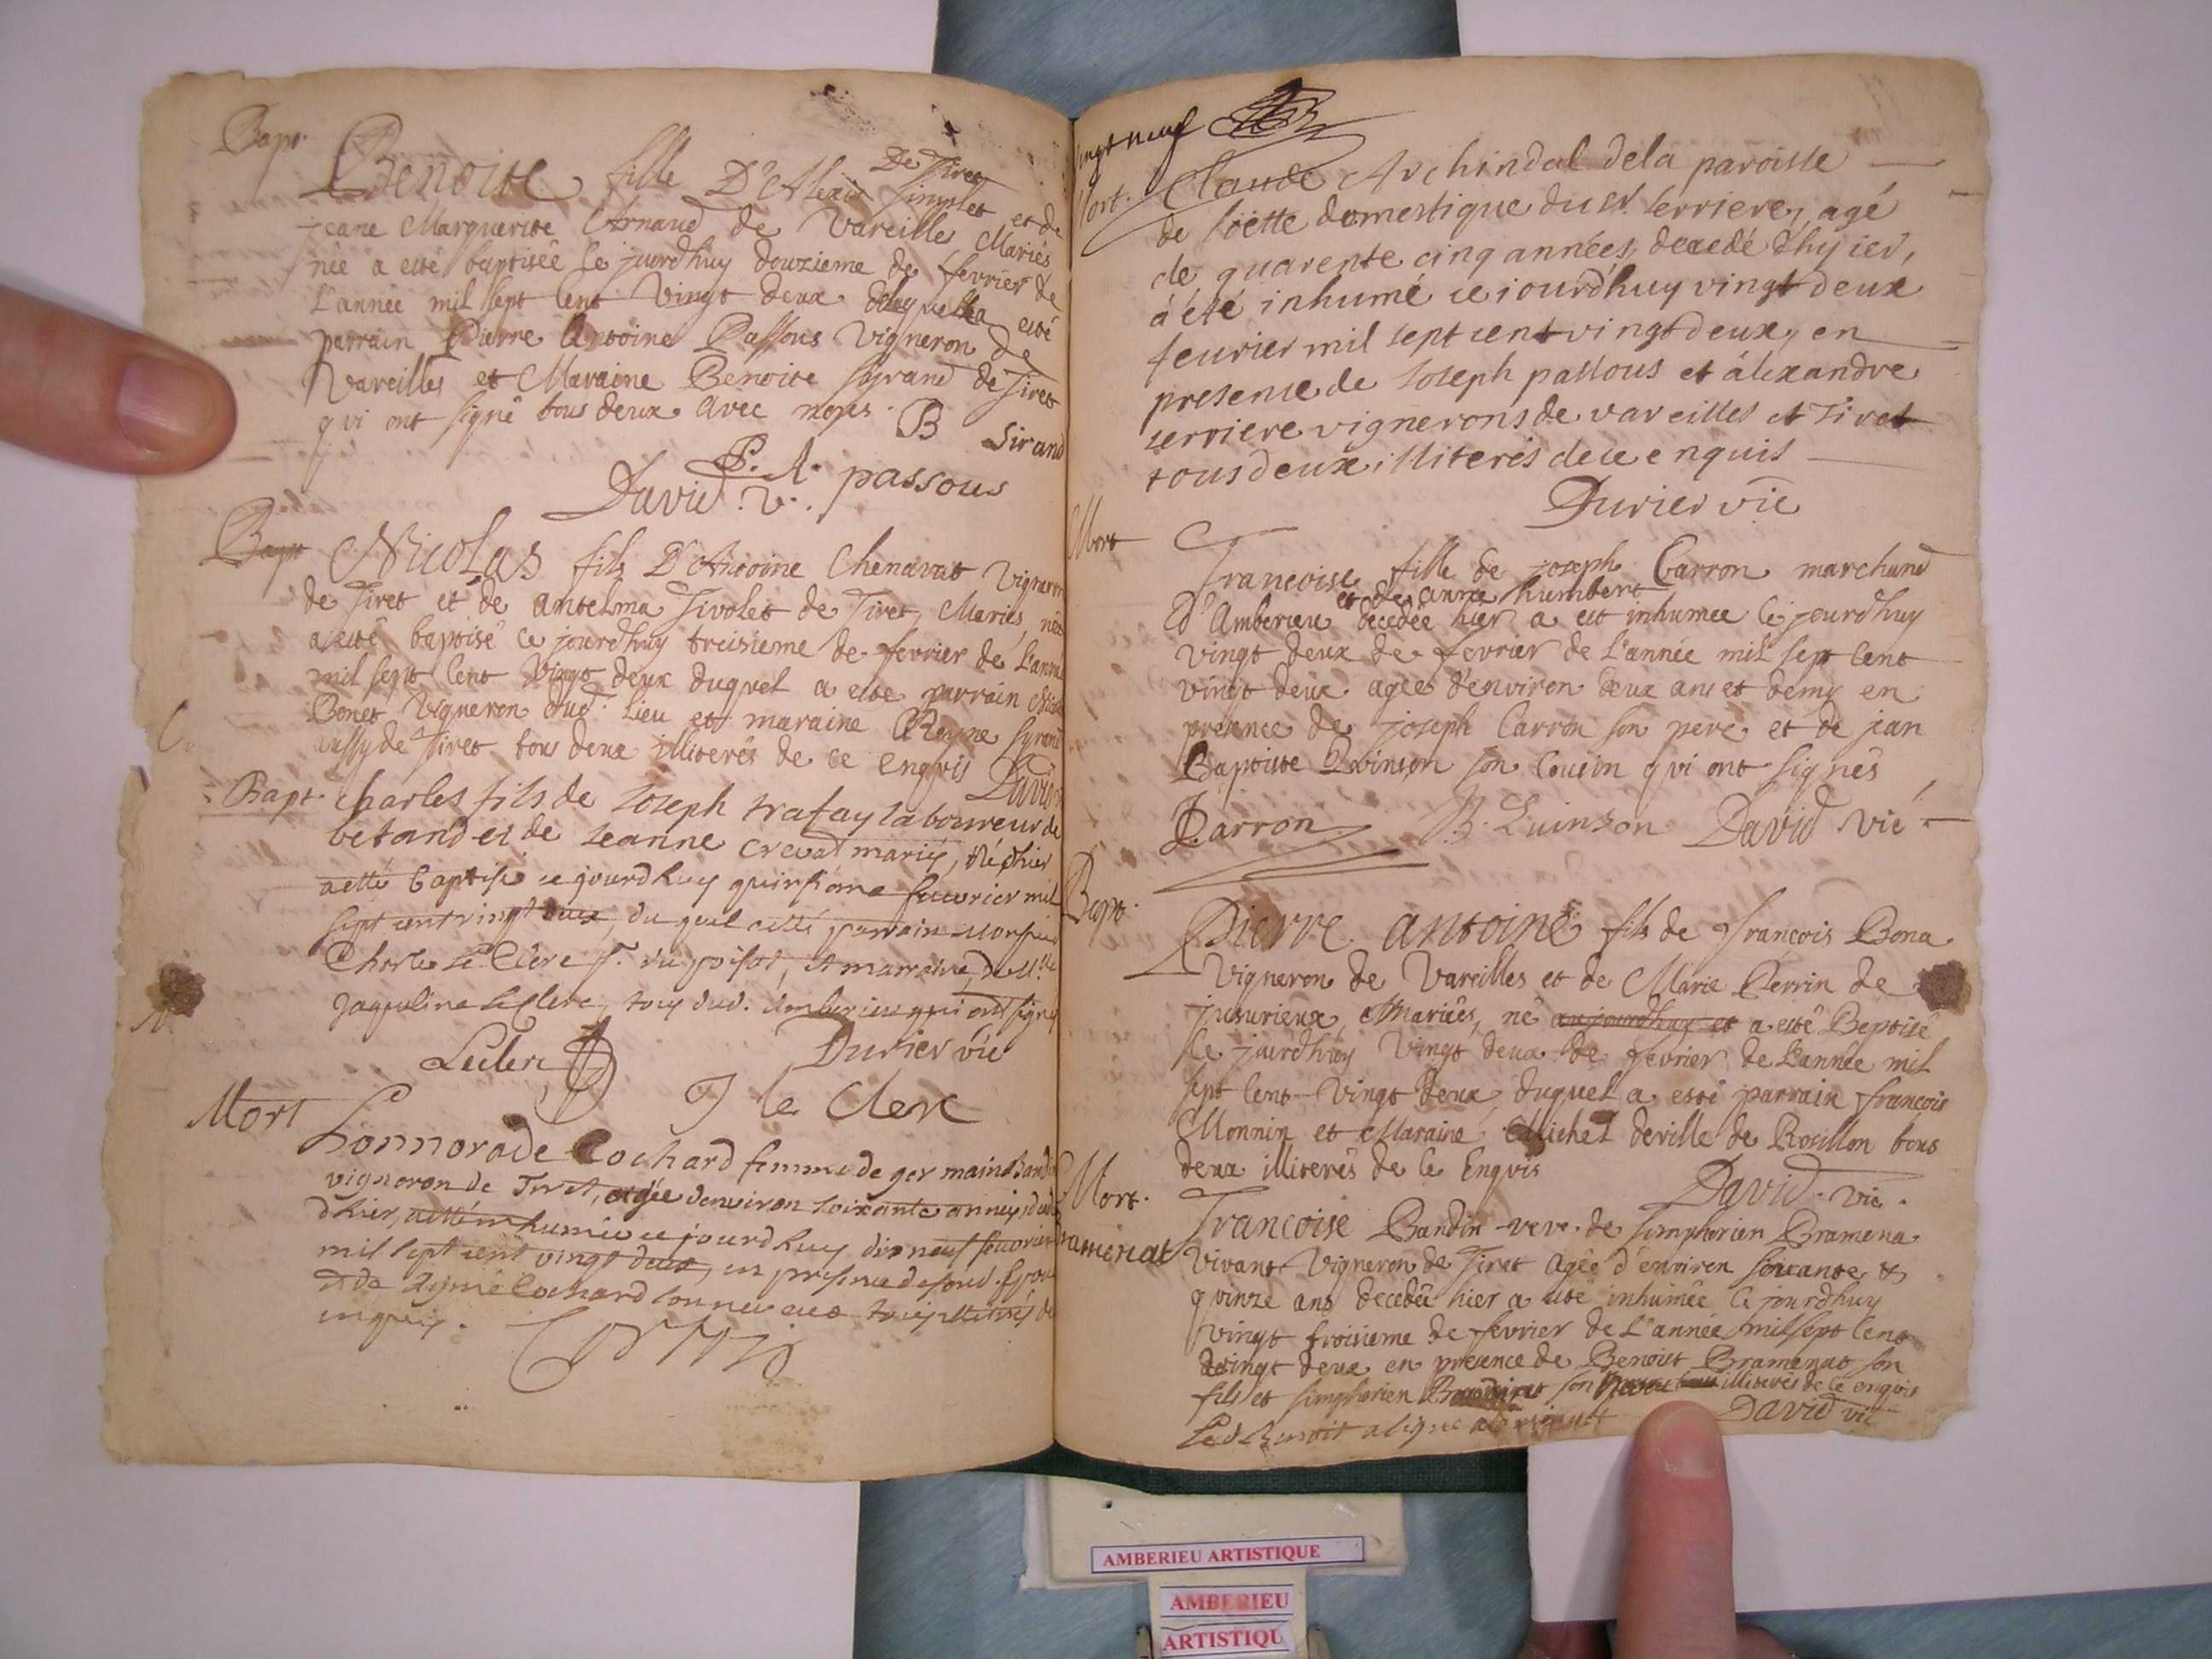 Bapt.
Benoite fille D'Alexis simplet et de
De Tiret
jeane Marguerite Arnaud de Vareilles Mariés
née a esté baptisée ce jourdhuy douzieme de fevrier de
L'année mil sept cent vingt deux de laquelle a esté
parrain Pierre Antoine Passous vigneron de
Vareilles et Maraine Benoite Syrand de Tiret
qui ont signé tous deux avec nous. B Sirand
P. A. passous
David. v.
Bapt Nicolas fils D'Antoine Chenavat vigneron
de Tiret et de antelma Tivolet de Tiret, Mariés, né
a esté baptisé ce jourdhuy treisieme de fevrier de L'année
mil sept cent vingt deux duquel a esté parrain
Bonet vigneron dud. Lieu et maraine Reyne Syrand
aussy de Tiret tous deux illiterés de ce enquis David
Bapt. Charles fils de Joseph trafay laboureur de
betand et de Jeanne crevat mariés, né dhier
a etté baptisé ce jourdhuy quinsieme feuvrier mil
sept cent vingt deux, du quel a etté parrain Monsieur
Charle Le Clerc Sr. du poisat, et marraine, de Mlle
Jaqueline Le Clerc, tous dud. Amberieu qui ont signés
Leclerc Durier vie
J le Clerc
Mort Honnorade Cochard femme de germain Bandin
vigneron de Tiret, agée denviron soixante années, deced
dhier, a etté inhumée ce jourdhuy dix neuf feuvrier
mil sept cent vingt deux, en presence de sond. Epoux
et de Aymé Cochard son neveu tous illiterés de
enquis.
vingt neuf
Mort. Claude Archindal de la paroisse
de loëtte domestique du sr. serriere, agé
de quarente cinq années, decedé d'hyier,
à été inhumé ce iourd'huy vingt deux
feurier mil sept cent vingt deux, en
presence de Joseph passous et álixandre
serriere vignerons de vareilles et Tiret
tous deux illiterés de ce enquis
Durier vie
Mort
Francoise fille de joseph Carron marchand
et de anne humbert
D'Amberieu decedée hier a esté inhumee ce jourdhuy
vingt deux de fevrier de L'année mil sept cent
vingt deux agée d'environ deux ans et demy en
presence de joseph Carron son pere et de jan
Baptiste Quinson son Cousin qui ont signés
J. Carron B. Quinson David vie
Bapt.
Pierre antoine fils de françois Bona
vigneron de Vareilles et de Marie Perrin de
jujurieux, Mariés, né aujourdhuy et a esté Baptisé
ce jourdhuy vingt deux de fevrier de L'année mil
sept cent vingt deux, duquel a esté parrain françois
Monnin et Maraine Michel deville de Rosillon tous
deux illiterés de ce Enquis
David. vie.
Mort.
Brameriat
Francoise Bandin veve de simphorien Bramena
vivant vigneron de Tiret agée d'environ soixante et
quinze ans decedée hier a esté inhumée ce jourdhuy
vingt troisieme de fevrier de L'année mil sept cent
vingt deux en presence de Benoist Bramenat son
fils et simphorien son illiterés de ce enquis
Led Benoit a signé David vie
AMBERIEU ARTISTIQUE
AMBERIEU
ARTISTIQU